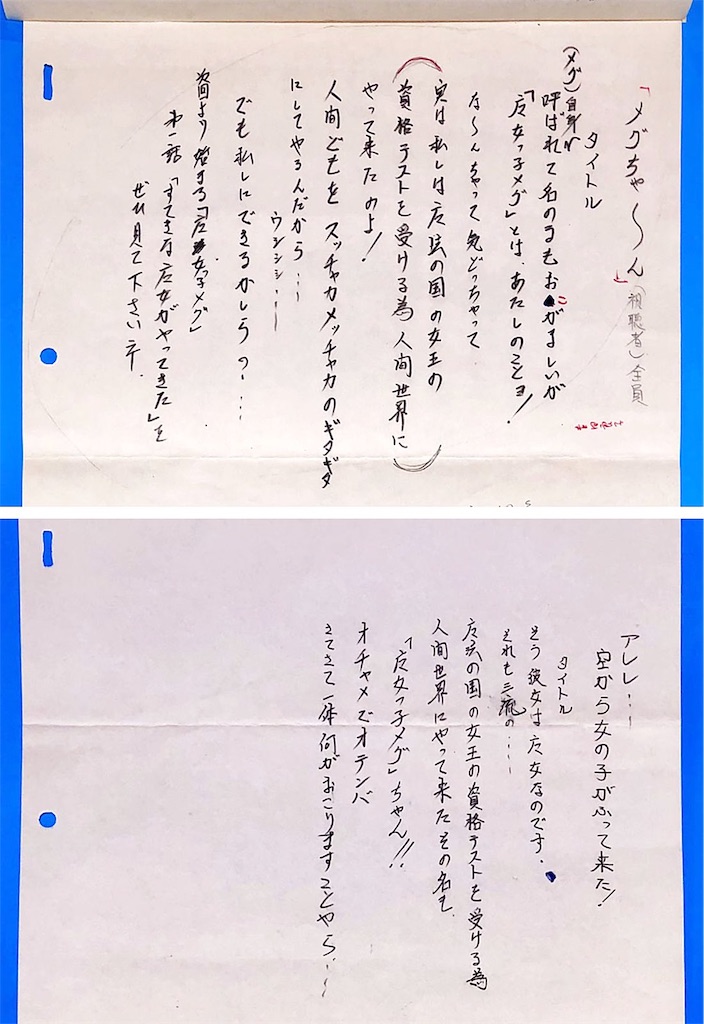 「メグちゃ〜ん」(視聴者)全員
タイトル
(メグ)自身が
呼ばれて名のるもおこがましいが
「魔女っ子メグ」とは、あたしのことヨ!
な〜んちゃって気どっちゃって
実は私しは魔法の国の女王の
資格テストを受ける為人間世界に
やって来たのよ!
人間どもをスッチャカメッチャカのギタギタ
にしてやるんだから…
ウシシシ…
でも私しにできるかしらっ…
より始まる「魔女っ子メグ」
第一話「すてきな魔女がやってきた」を
ぜひ見て下さいネ.
アレレ…
空から女の子がふって来た!
タイトル
そう彼女は魔女なのです.
それも三流の…
魔法の国の女王の資格テストを受ける為
人間世界にやって来たその名も
「魔女っ子メグ」ちゃん!!
オチャメでオテンバ
さてさて一体何がおこりますことやら…